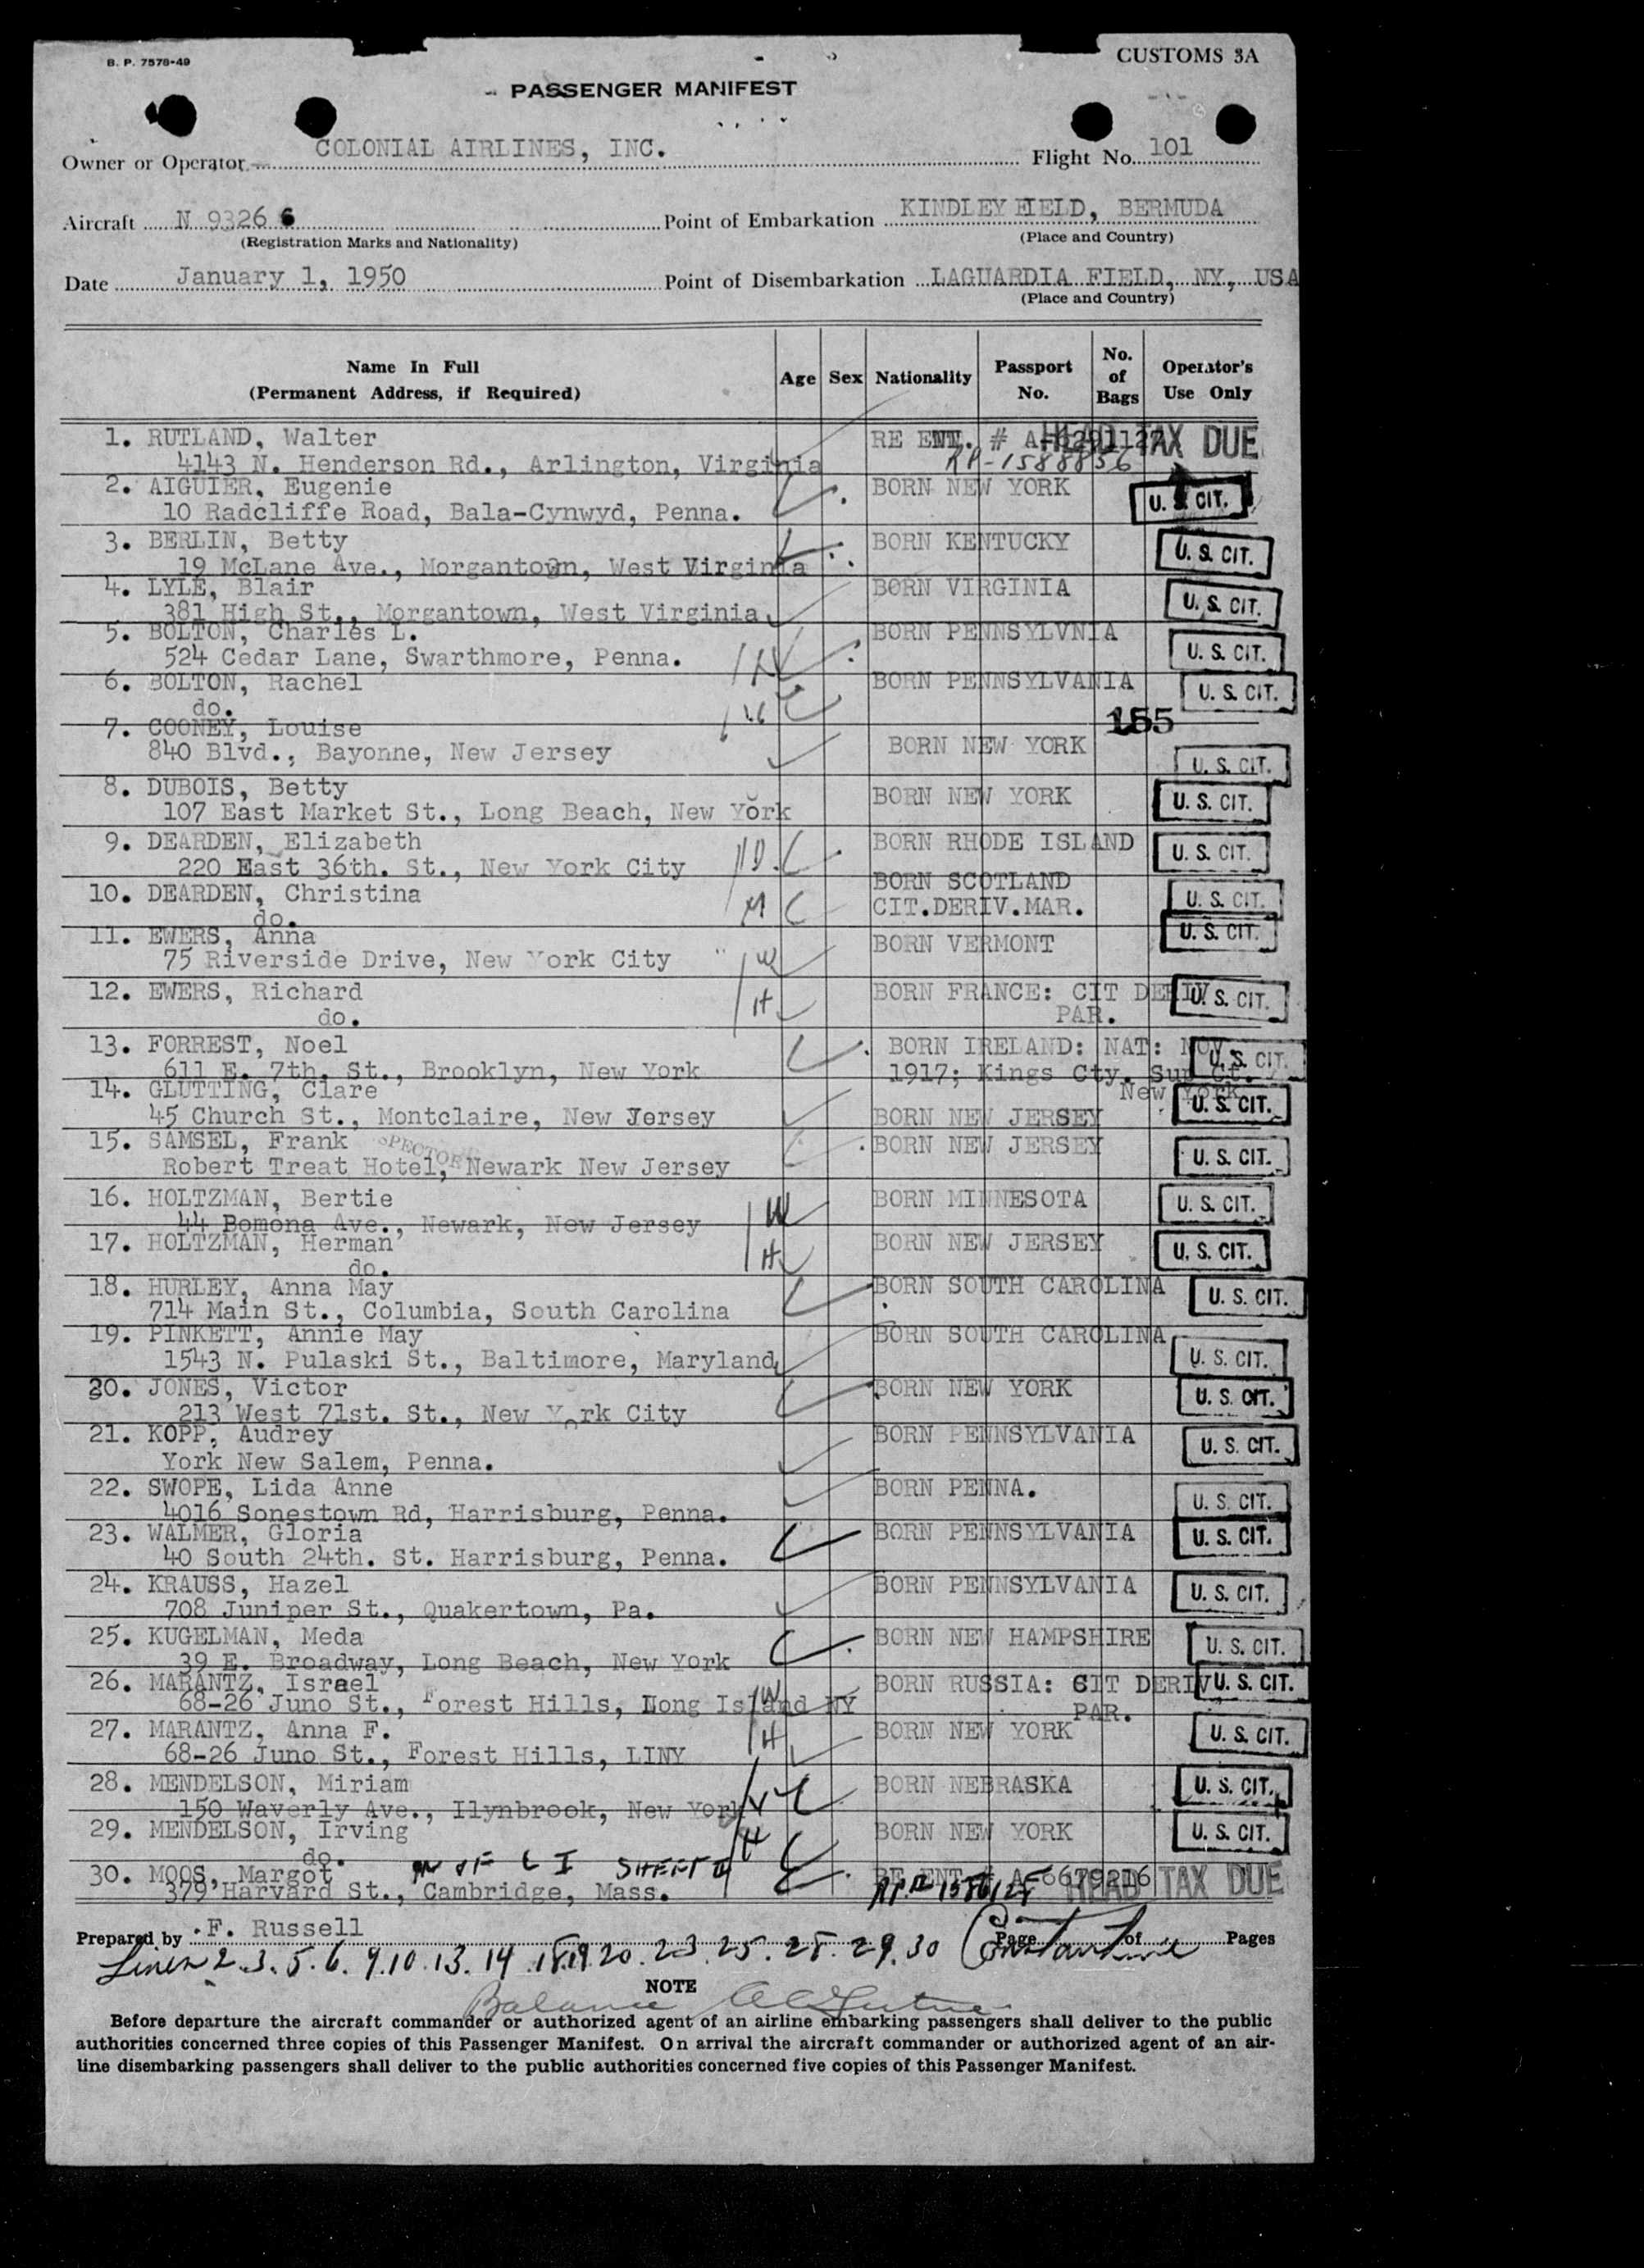 B. P. 7578-49
CUSTOMS 3A
PASSENGER MANIFEST
Owner or Operator COLONIAL AIRLINES, INC. Flight No. 101
Aircraft N 93266 Point of Embarkation KINDLEY FIELD, BERMUDA
(Registration Marks and Nationality) (Place and Country)
Date January 1, 1950 Point of Disembarkation LAGUARDIA FIELD, NY, USA
(Place and Country)
Name In Full (Permanent Address, if Required) Age Sex Nationality Passport No. No. of Bags Operator's Use Only
1. RUTLAND, Walter RE ENT. # HEAD TAX DUE
4143 N. Henderson Rd., Arlington, Virginia RP-1588856
2. AIGUIER, Eugenie BORN NEW YORK U. S. CIT.
10 Radcliffe Road, Bala-Cynwyd, Penna.
3. BERLIN, Betty BORN KENTUCKY U. S. CIT.
19 McLane Ave., Morgantown, West Virginia
4. LYLE, Blair BORN VIRGINIA U. S. CIT.
381 High St., Morgantown, West Virginia
5. BOLTON, Charles L. BORN PENNSYLVNIA U. S. CIT.
524 Cedar Lane, Swarthmore, Penna. H
6. BOLTON, Rachel BORN PENNSYLVANIA U. S. CIT.
do. W
155
7. COONEY, Louise BORN NEW YORK U. S. CIT.
840 Blvd., Bayonne, New Jersey
8. DUBOIS, Betty BORN NEW YORK U. S. CIT.
107 East Market St., Long Beach, New York
9. DEARDEN, Elizabeth BORN RHODE ISLAND U. S. CIT.
220 East 36th. St., New York City D.
10. DEARDEN, Christina BORN SCOTLAND U. S. CIT.
do. M CIT.DERIV.MAR.
11. EWERS, Anna BORN VERMONT U. S. CIT.
75 Riverside Drive, New York City W
12. EWERS, Richard BORN FRANCE: CIT DERIV U. S. CIT.
do. H PAR.
13. FORREST, Noel BORN IRELAND: NAT: NOV. U. S. CIT.
611 E. 7th. St., Brooklyn, New York 1917; Kings Cty. Sup Ct.
New York
14. GLUTTING, Clare U. S. CIT.
45 Church St., Montclaire, New Jersey BORN NEW JERSEY
15. SAMSEL, Frank BORN NEW JERSEY U. S. CIT.
Robert Treat Hotel, Newark New Jersey
16. HOLTZMAN, Bertie BORN MINNESOTA U. S. CIT.
44 Pomona Ave., Newark, New Jersey W
17. HOLTZMAN, Herman BORN NEW JERSEY U. S. CIT.
do. H
18. HURLEY, Anna May BORN SOUTH CAROLINA U. S. CIT.
714 Main St., Columbia, South Carolina
19. PINKETT, Annie May BORN SOUTH CAROLINA
1543 N. Pulaski St., Baltimore, Maryland U. S. CIT.
20. JONES, Victor BORN NEW YORK U. S. CIT.
213 West 71st. St., New York City
21. KOPP, Audrey BORN PENNSYLVANIA U. S. CIT.
York New Salem, Penna.
22. SWOPE, Lida Anne BORN PENNA. U. S. CIT.
4016 Sonestown Rd, Harrisburg, Penna.
23. WALMER, Gloria BORN PENNSYLVANIA U. S. CIT.
40 South 24th. St. Harrisburg, Penna.
24. KRAUSS, Hazel BORN PENNSYLVANIA U. S. CIT.
708 Juniper St., Quakertown, Pa.
25. KUGELMAN, Meda BORN NEW HAMPSHIRE U. S. CIT.
39 E. Broadway, Long Beach, New York
26. MARANTZ, Israel BORN RUSSIA: CIT DERIV U. S. CIT.
68-26 Juno St., Forest Hills, Long Island NY W PAR.
27. MARANTZ, Anna F. BORN NEW YORK U. S. CIT.
68-26 Juno St., Forest Hills, LINY H
28. MENDELSON, Miriam BORN NEBRASKA U. S. CIT.
150 Waverly Ave., Ilynbrook, New York
29. MENDELSON, Irving BORN NEW YORK U. S. CIT.
do. H
30. MOOS, Margot SHEET RE ENT # A-6679216 HEAD TAX DUE
379 Harvard St., Cambridge, Mass.
Prepared by F. Russell Page of Pages
Lines 2.3.5.6.9.10.13.14.18.19.20.23.25.28.29.30
NOTE
Balance
Before departure the aircraft commander or authorized agent of an airline embarking passengers shall deliver to the public
authorities concerned three copies of this Passenger Manifest. On arrival the aircraft commander or authorized agent of an air-
line disembarking passengers shall deliver to the public authorities concerned five copies of this Passenger Manifest.